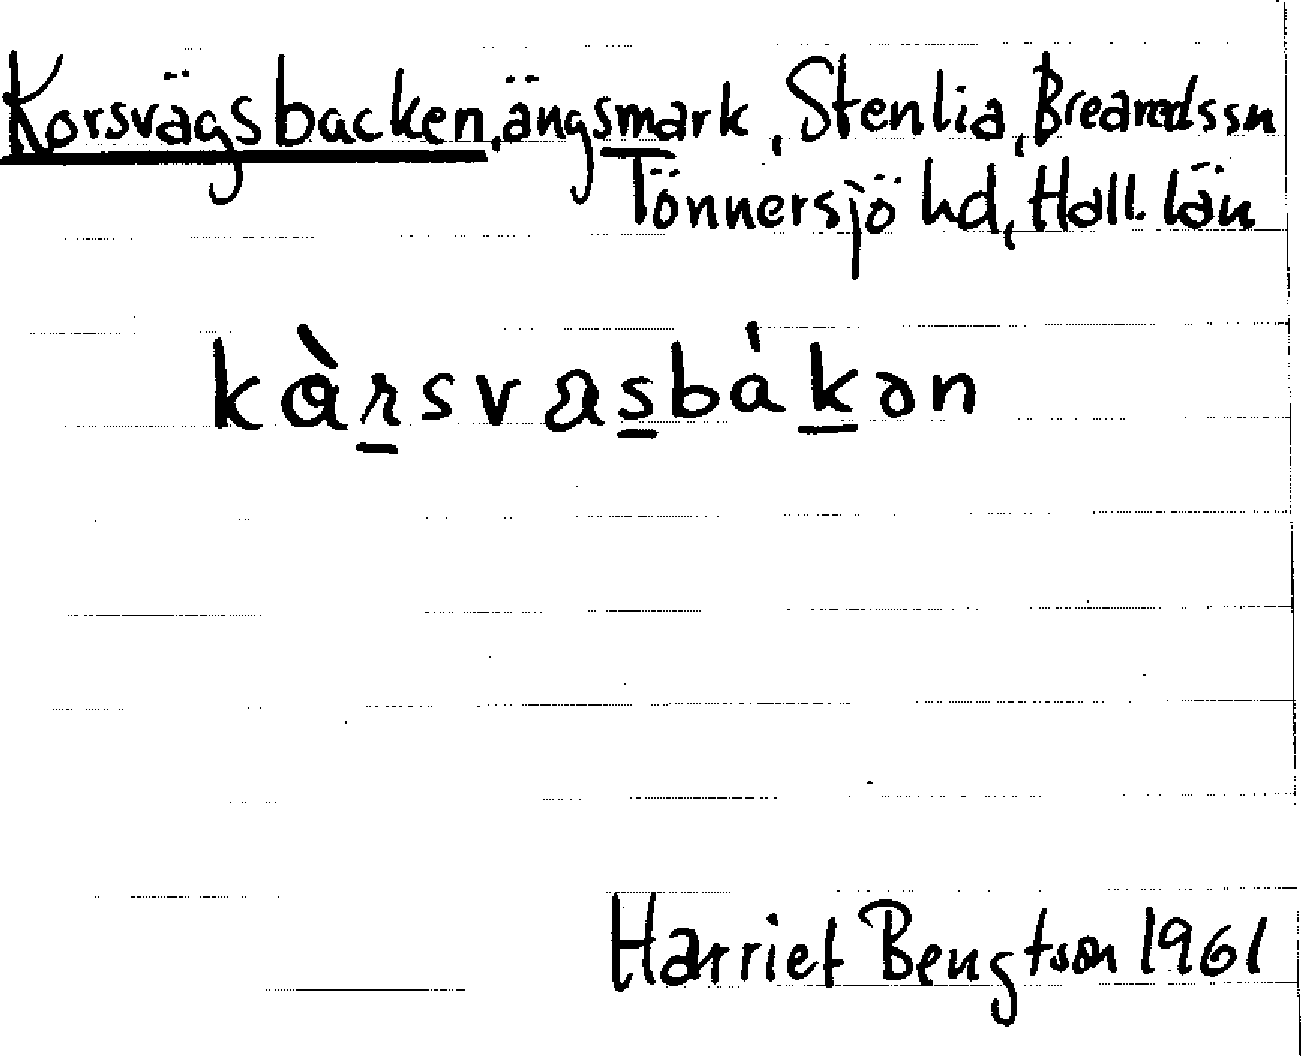 Korsvägsbacken, ängsmark, Stenlia, Brearedssn
Tönnersjö hd, Hall. län
kàrsvasbákən
Harriet Bengtson 1961